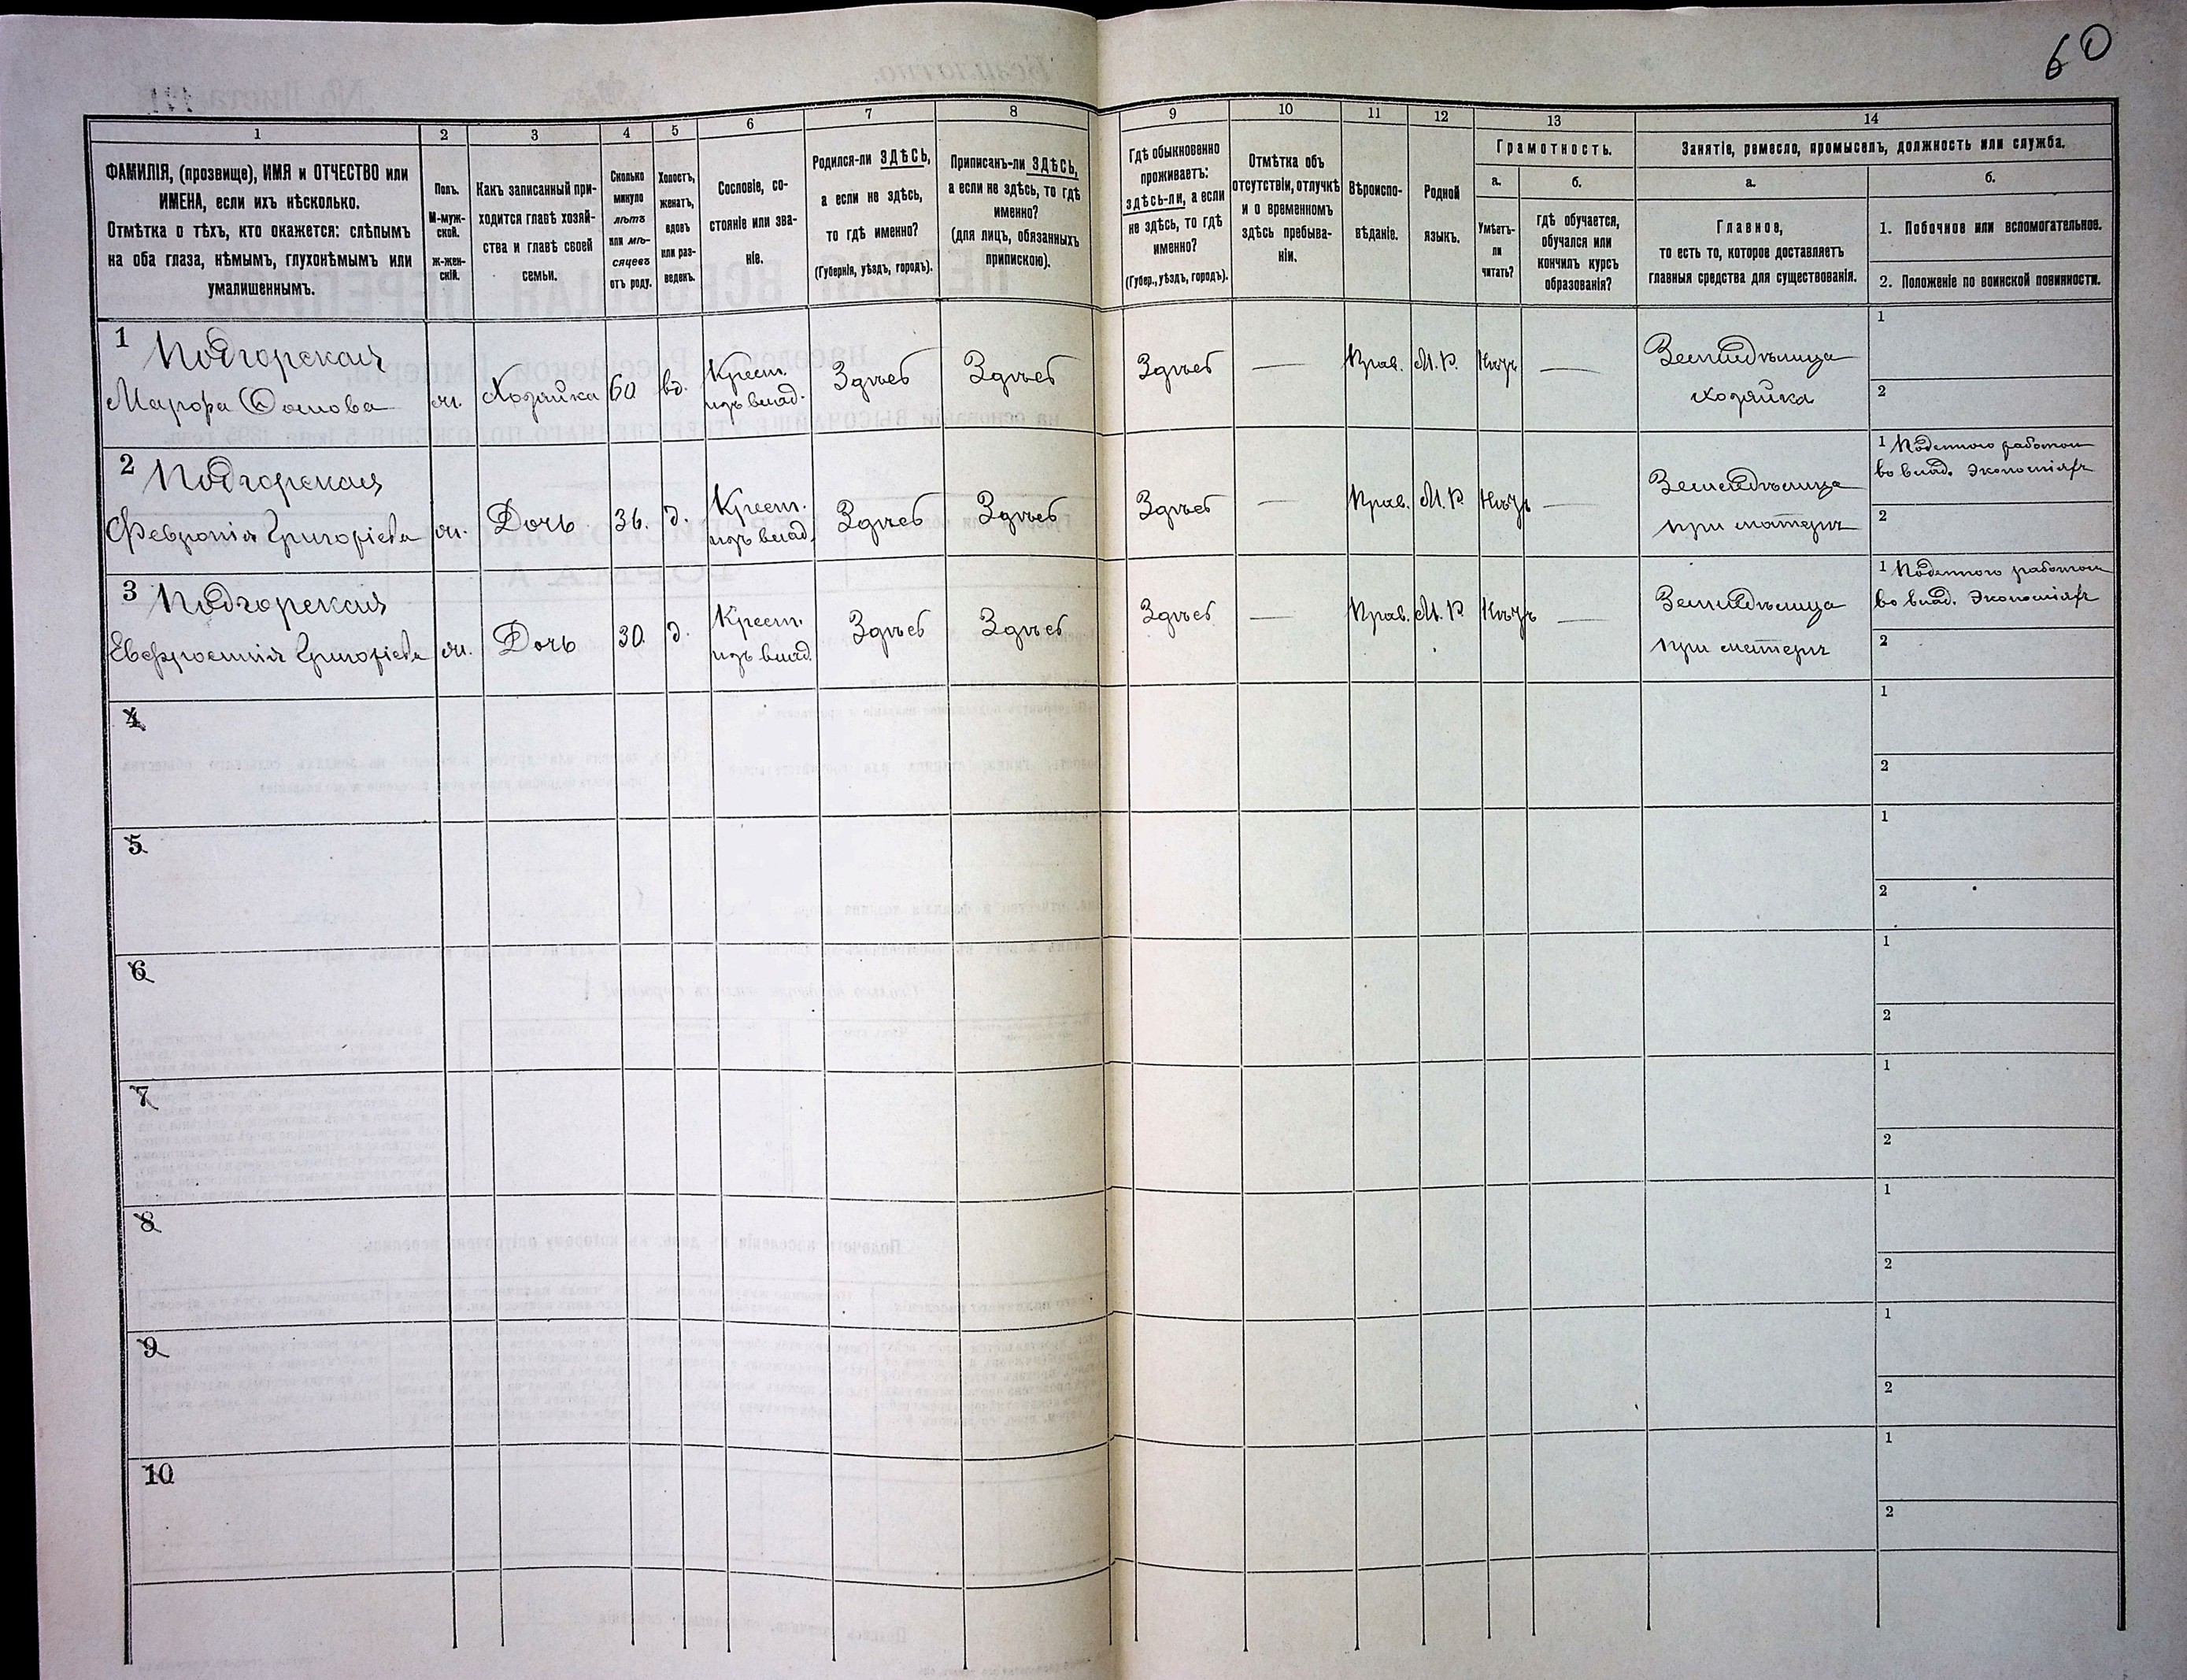 60
1
ФАМИЛІЯ, (прозвище), ИМЯ и ОТЧЕСТВО или
ИМЕНА, если ихъ нѣсколько.
Отмѣтка о тѣхъ, кто окажется: слѣпымъ
на оба глаза, нѣмымъ, глухонѣмымъ или
умалишеннымъ.
2
Полъ.
М-муж-
ской.
ж-жен-
скій.
3
Какъ записанный при-
ходится главѣ хозяй-
ства и главѣ своей
семьи.
4
Сколько
минуло
лѣтъ
или мѣ-
сяцевъ
отъ роду.
5
Холостъ,
женатъ,
вдовъ
или раз-
веденъ.
6
Сословіе, со-
стояніе или зва-
ніе.
7
Родился-ли ЗДѢСЬ,
а если не здѣсь,
то гдѣ именно?
(Губернія, уѣздъ, городъ).
8
Приписанъ-ли ЗДѢСЬ,
а если не здѣсь, то гдѣ
именно?
(для лицъ, обязанныхъ
припискою).
9
Гдѣ обыкновенно
проживаетъ:
здѣсь-ли, а если
не здѣсь, то гдѣ
именно?
(Губер., уѣздъ, городъ).
10
Отмѣтка объ
отсутствіи, отлучкѣ
и о временномъ
здѣсь пребыва-
ніи.
11
Вѣроиспо-
вѣданіе.
12
Родной
языкъ.
13
Грамотность.
а.
Умѣетъ-
ли
читать?
б.
гдѣ обучается,
обучался или
кончилъ курсъ
образованія?
14
Занятіе, ремесло, промыселъ, должность или служба.
а.
Главное,
то есть то, которое доставляетъ
главныя средства для существованія.
б.
1. Побочное или вспомогательное.
2. Положеніе по воинской повинности.
1 Подгорская
Марфа Фомова
ж.
Хозяйка
60
вд.
Крест.
изъ влад.
Здѣсь
Здѣсь
Здѣсь
—
Прав.
М. Р.
Нѣтъ
—
Земледѣлица
хозяйка
1
2
2 Подгорская
Февронія Григоріева
ж.
Дочь
36.
д.
Крест.
изъ влад.
Здѣсь
Здѣсь
Здѣсь
—
Прав.
М. Р.
Нѣтъ
—
Земледѣлица
при матери
1 Поденного работою
во влад. Экономіяхъ
2
3 Подгорская
Евфросинія Григоріева
ж.
Дочь
30.
д.
Крест.
изъ влад.
Здѣсь
Здѣсь
Здѣсь
—
Прав.
М. Р.
Нѣтъ
—
Земледѣлица
при матери
1 Поденного работою
во влад. Экономіяхъ
2
4
1
2
5
1
2
6
1
2
7
1
2
8
1
2
9
1
2
10
1
2